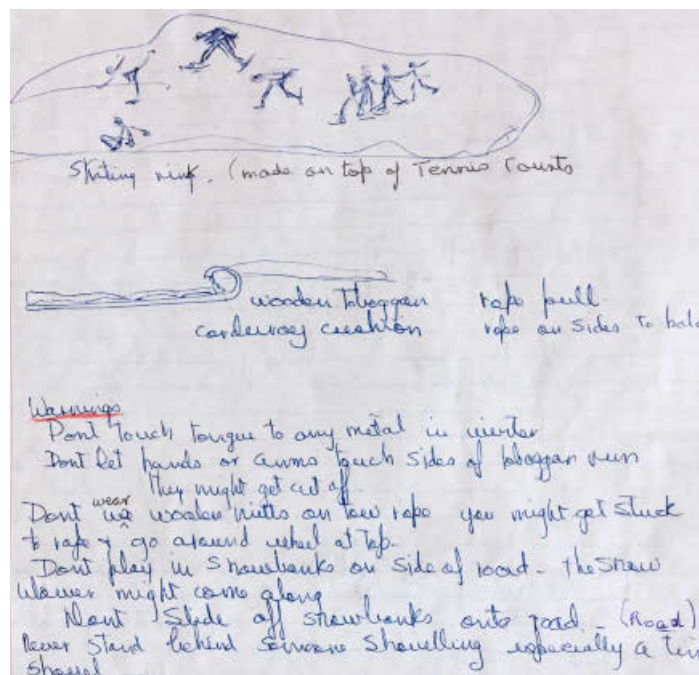 Skating rink. (made on top of Tennis Courts
wooden toboggan rope pull
corderoy cushion rope on sides to hold
Warnings
Dont Touch tongue to any metal in winter
Dont Let hands or arms touch sides of toboggan run
they might get cut off.
wear
Dont use woolen mitts on tow rope you might get stuck
to rope & go around wheel at top.
Dont play in Snowbanks on side of road - the snow
blower might come along
Dont Slide off snowbanks onto road - (Road)
Never Stand behind someone Shovelling especially a
shovel